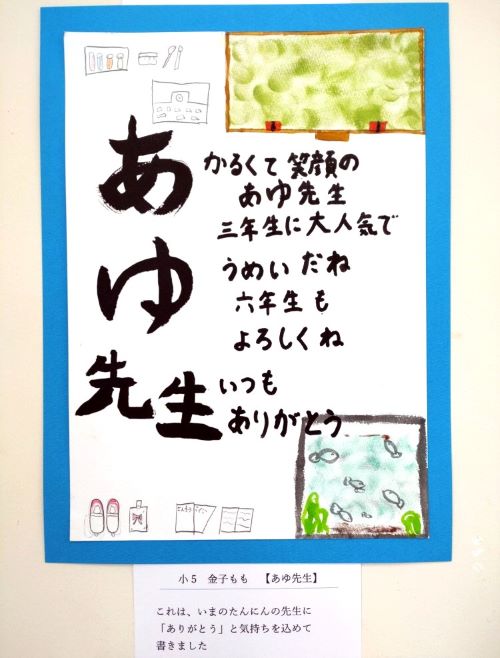 あかるくて 笑顔の
あゆ先生
三年生に大人気で
ゆうめいだね
六年生も
よろしくね
先生いつも
ありがとう
小5 金子もも 【あゆ先生】
これは、いまのたんにんの先生に
「ありがとう」と気持ちを込めて
書きました